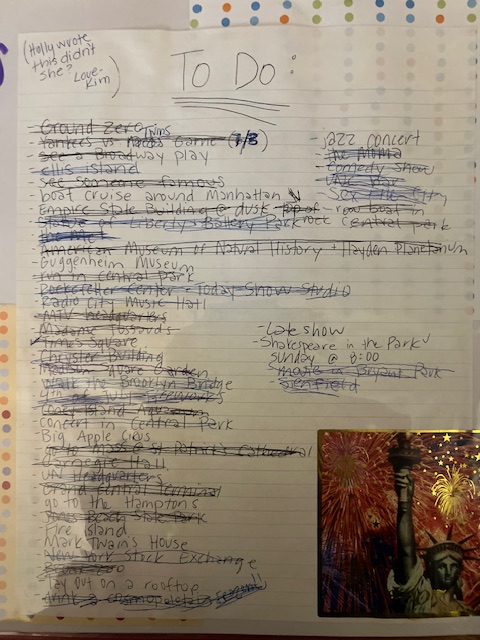 (Holly wrote
this didn't
she?
Love-
Kim)
To Do:
- Ground Zero
Twins
- Yankees vs. Game (7/3)
- see a Broadway play
- Ellis Island
- see someone famous
- boat cruise around Manhattan
- Empire State Building @ dusk top of rock
- Statue of Liberty + Battery Park
- American Museum of Natural History + Hayden Planetarium
- Guggenheim Museum
- run in Central Park
- Rockefeller Center + Today Show Studio
- Radio City Music Hall
- MTV headquarters
- Madame Tussauds
- Times Square
- Chrysler Building
- Madison Square Garden
- Walk the Brooklyn Bridge
- 4th of July fireworks
- Coney Island Aquarium
- concert in Central Park
- Big Apple Circus
- go to Mass @ St. Patrick's Cathedral
- Carnegie Hall
- UN Headquarters
- Grand Central Terminal
- go to the Hamptons
- Jones Beach State Park
- Fire Island
- Mark Twain's House
- New York Stock Exchange
- lay out on a rooftop
- drink a cosmopolitan
- jazz concert
- The MoMA
- comedy show
- Sex + the City
- row boat in
Central park
- Late show
- Shakespeare in the Park
Sunday @ 8:00
- movie in Bryant Park
- Seinfield